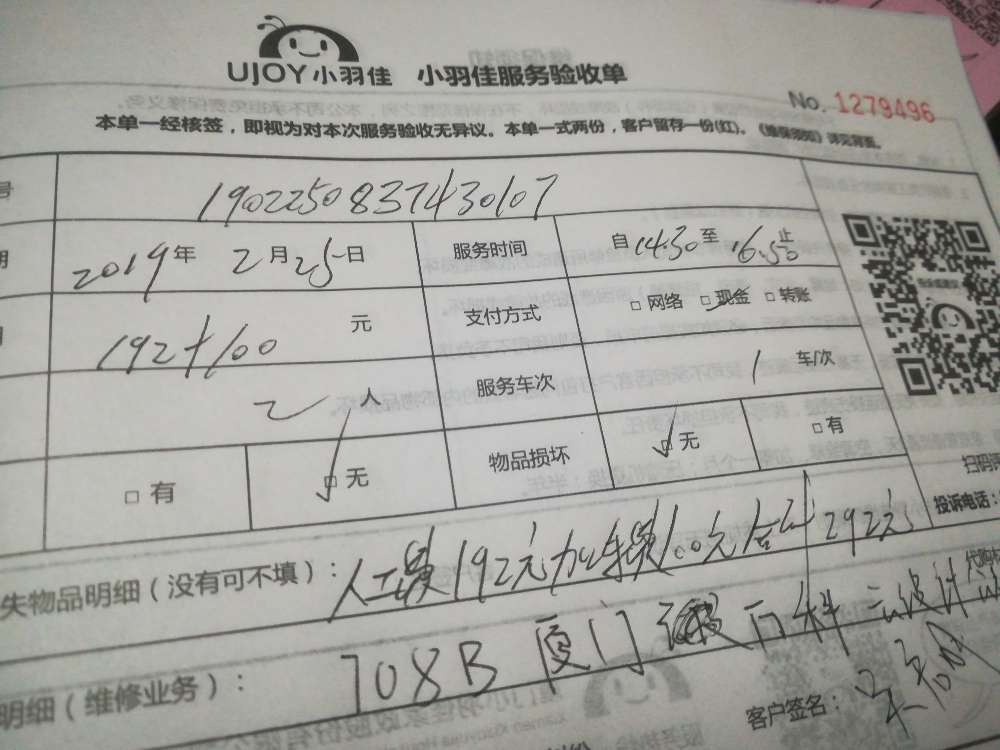 UJOY小羽佳 小羽佳服务验收单
No. 1279496
本单一经核签，即视为对本次服务验收无异议。本单一式两份，客户留存一份(红)。《维保须知》详见背面。
号 1902250837430107
期 2019年 2月25日 服务时间 自14:30至16:50止
192+100 元 支付方式 □网络 □现金 □转账
2人 服务车次 1 车/次
□有 □无 物品损坏 □无 □有
扫码
投诉电话：
失物品明细（没有可不填）： 人工费192元加车费100元合计292元
明细（维修业务）： 708B 厦门 百科 设计
客户签名：